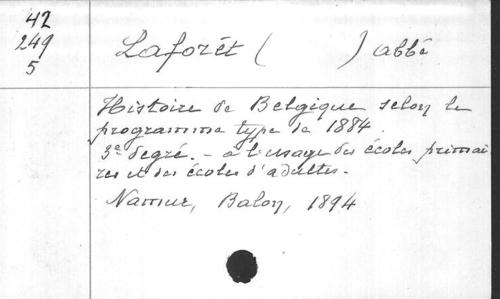 42
249
5
Laforêt ( ) abbé
Histoire de Belgique selon le
programme type de 1884
3e degré. - à l'usage des écoles primai
res et des écoles d'adultes.
Namur, Balon, 1894